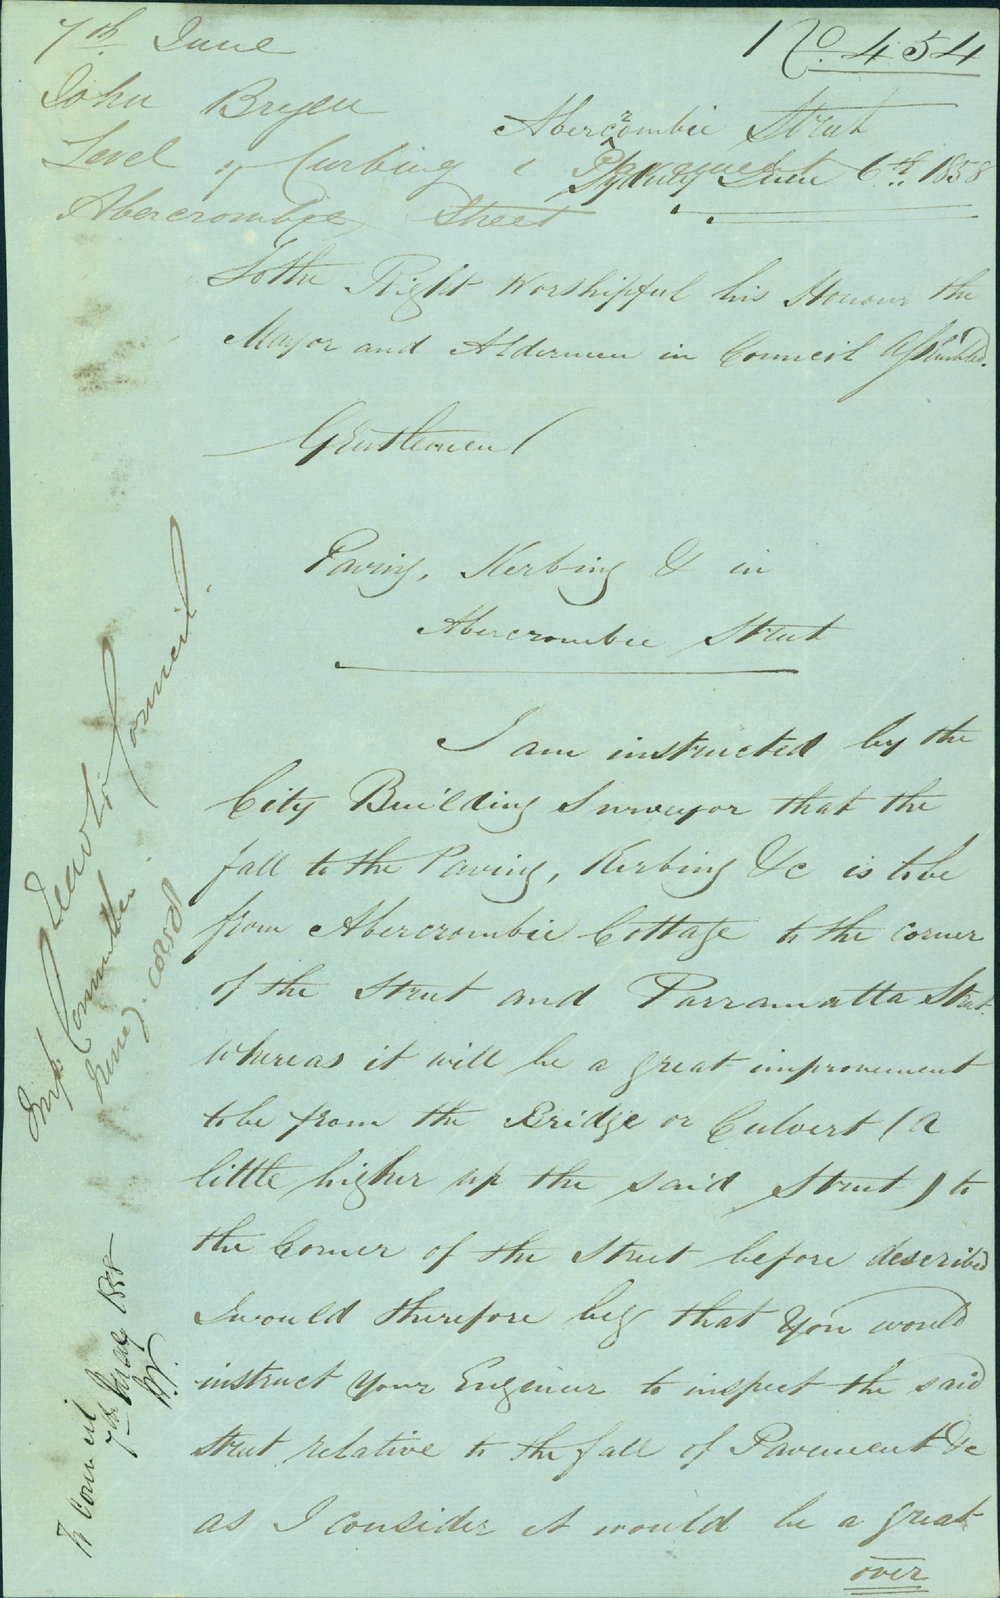 7th June
No 454
John Bryen
Abercrombie Street
Level of Curbing & Pavement
Sydney June 6th 1858
Abercrombie Street
To the Right Worshipful his Honour the
Mayor and Aldermen in Council Assembled.
Gentlemen
Paving, Kerbing & in
Abercrombie Street
I am instructed by the
City Building Surveyor that the
fall to the Paving, Kerbing &c is to be
from Abercrombie Cottage to the corner
of the Street and Parramatta Street
whereas it will be a great improvement
to be from the Bridge or Culvert (a
little higher up the said Street) to
the Corner of the Street before described
I would therefore beg that you would
instruct your Engineer to inspect the said
street relative to the fall of Pavement &c
as I consider it would be a great
over
Council.
Imp Committee
To Council
7th 1858